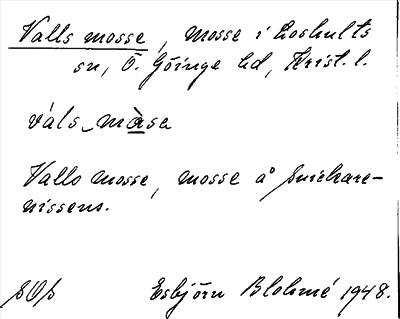 Valls mosse, mosse i Loshults
sn, Ö. Göinge hd, Krist. l.
váls_màsa
Valls mosse, mosse å Snickare-
nissens.
SOs Esbjörn Blohmé 1948.